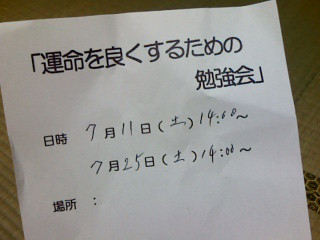 「運命を良くするための
勉強会」
日時 7月11日(土)14:00~
7月25日(土)14:00~
場所 :